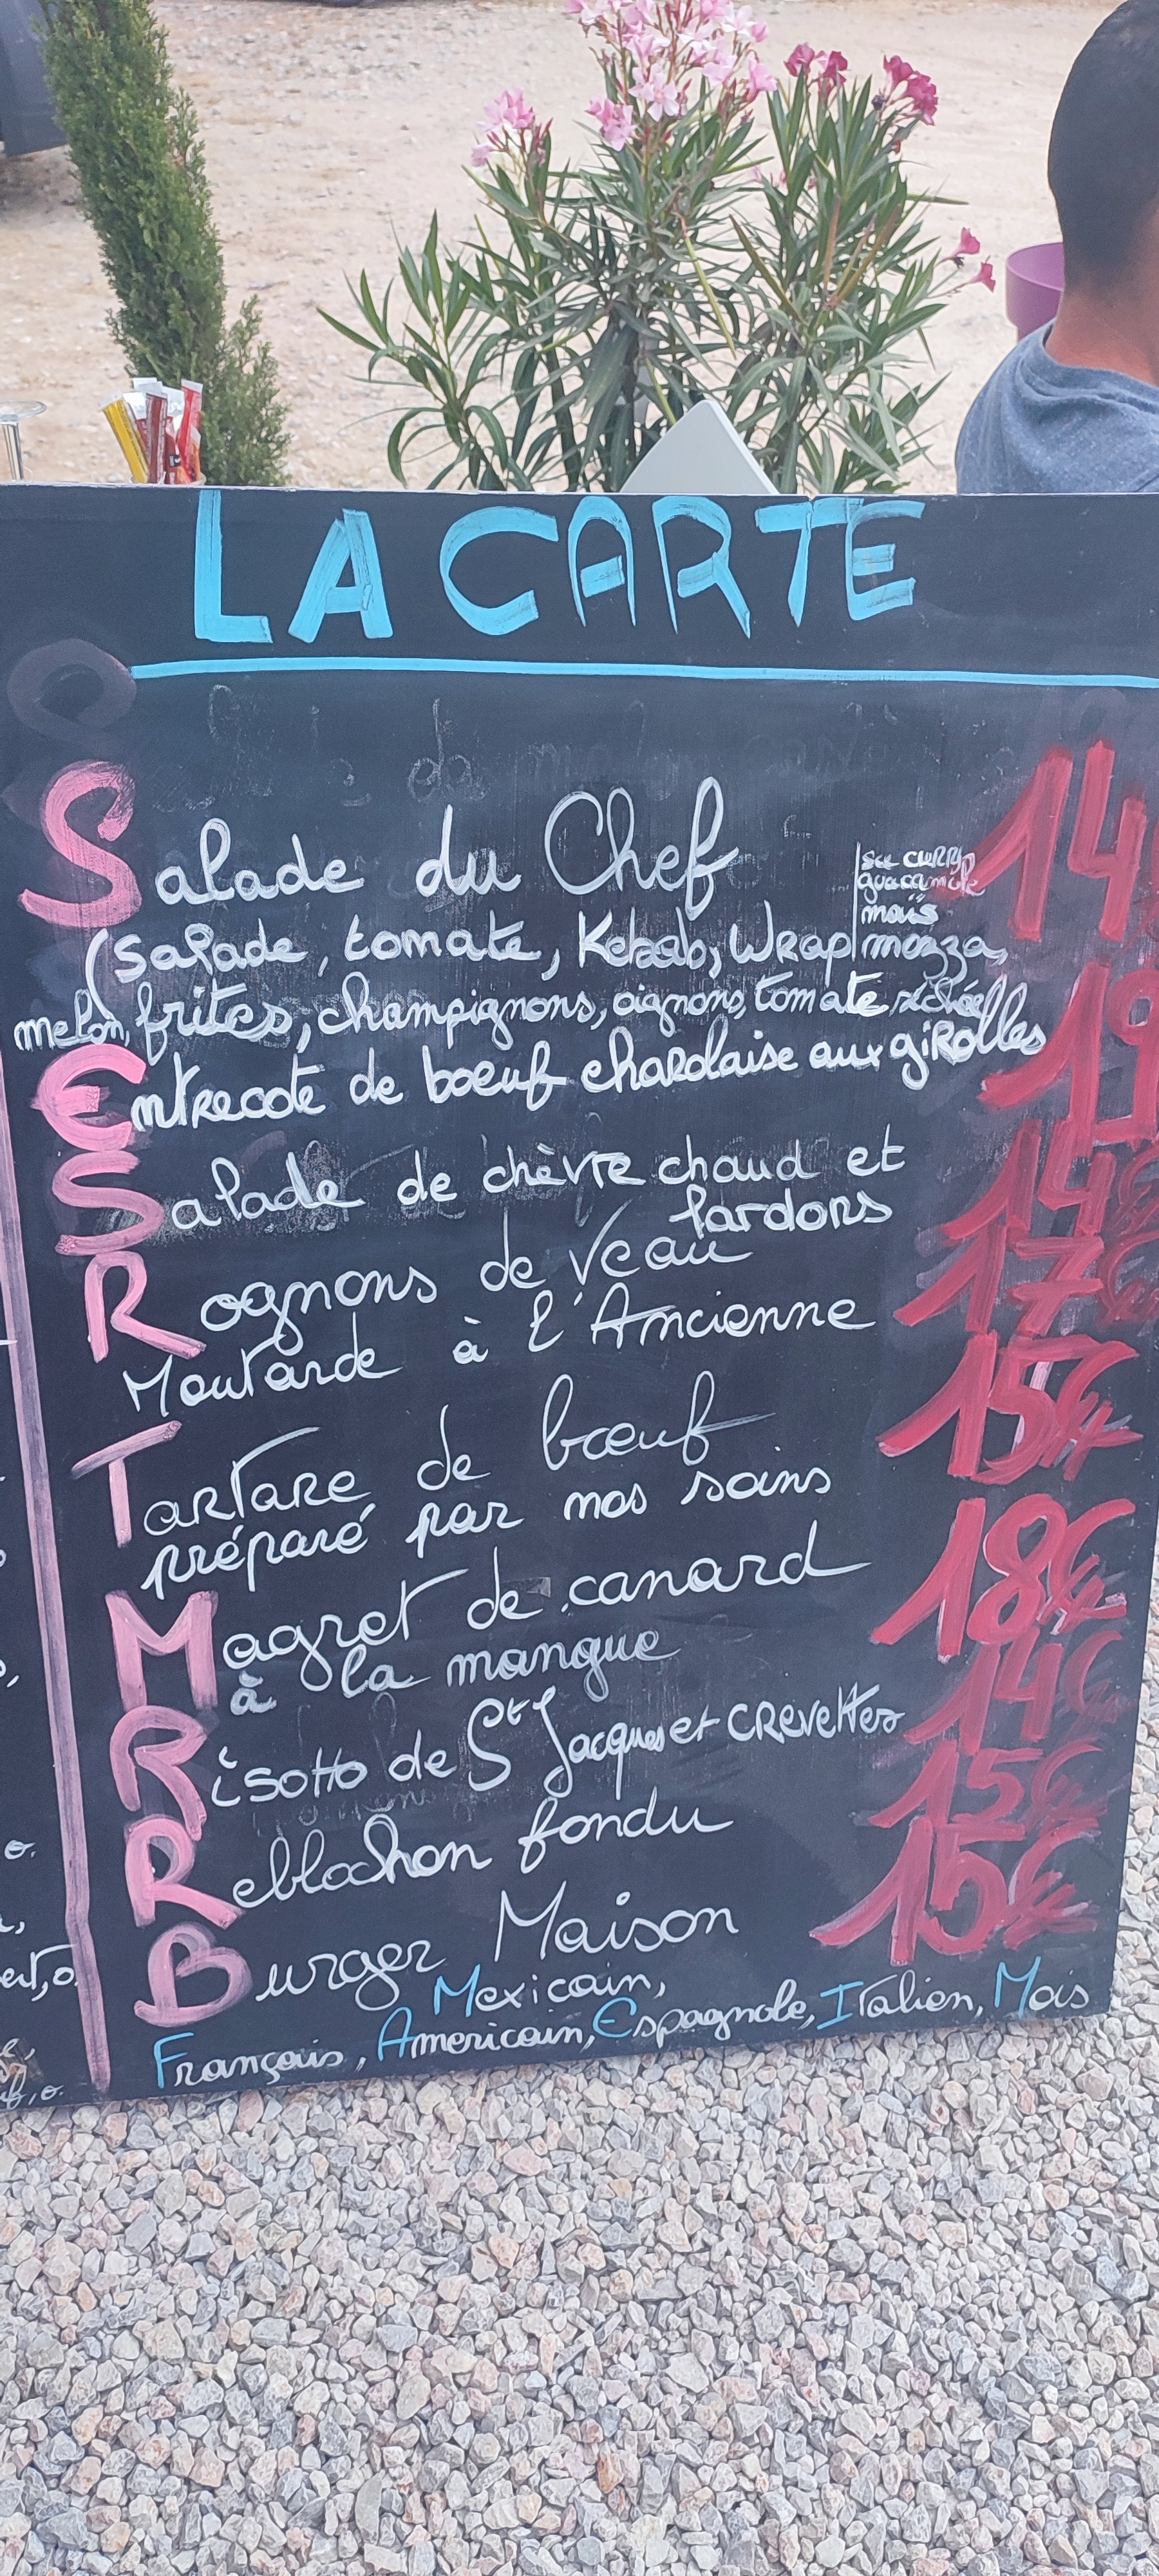 LA CARTE
Salade du Chef 14
sce curry
guacamole
maïs
(salade, tomate, Kebab, Wrap mozza,
melon, frites, champignons, oignons, tomate séchée)
Entrecote de boeuf charolaise aux giRolles 19
Salade de chèvre chaud et 14€
lardons
Rognons de Veau 17€
Moutarde à l'Ancienne
Tartare de boeuf 15€
préparé par nos soins
Magret de canard 18€
à la mangue
Risotto de St Jacques et CRevettes 14€
Reblochon fondu 15€
Burger Maison 15€
Mexicain,
Français, Americain, Espagnole, Italien, Mois